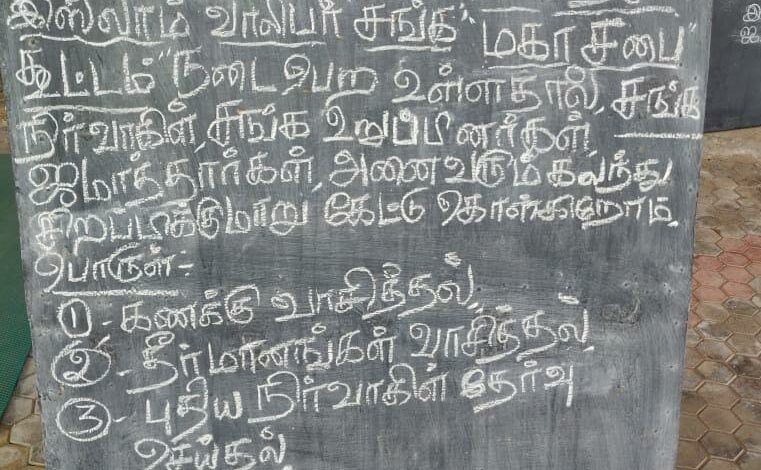 இஸ்லாம் வாலிபர் சங்க "மகா சபை"
கூட்டம்" நடைபெற உள்ளதால், சங்க
நிர்வாகிள், சங்க உறுப்பினர்கள்,
ஜமாத்தார்கள், அனைவரும் கலந்து
சிறப்பிக்குமாறு கேட்டு கொள்கிறோம்.
பொருள்:-
①- கணக்கு வாசித்தல்,
②- தீர்மானங்கள் வாசித்தல்,
③- புதிய நிர்வாகிள் தேர்வு
செய்தல்,